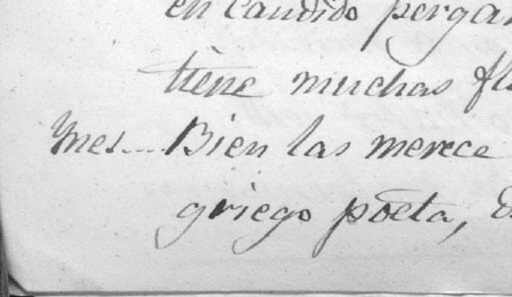 en candido pergam
tiene muchas fl
Ynes... Bien las merece
griego poeta,